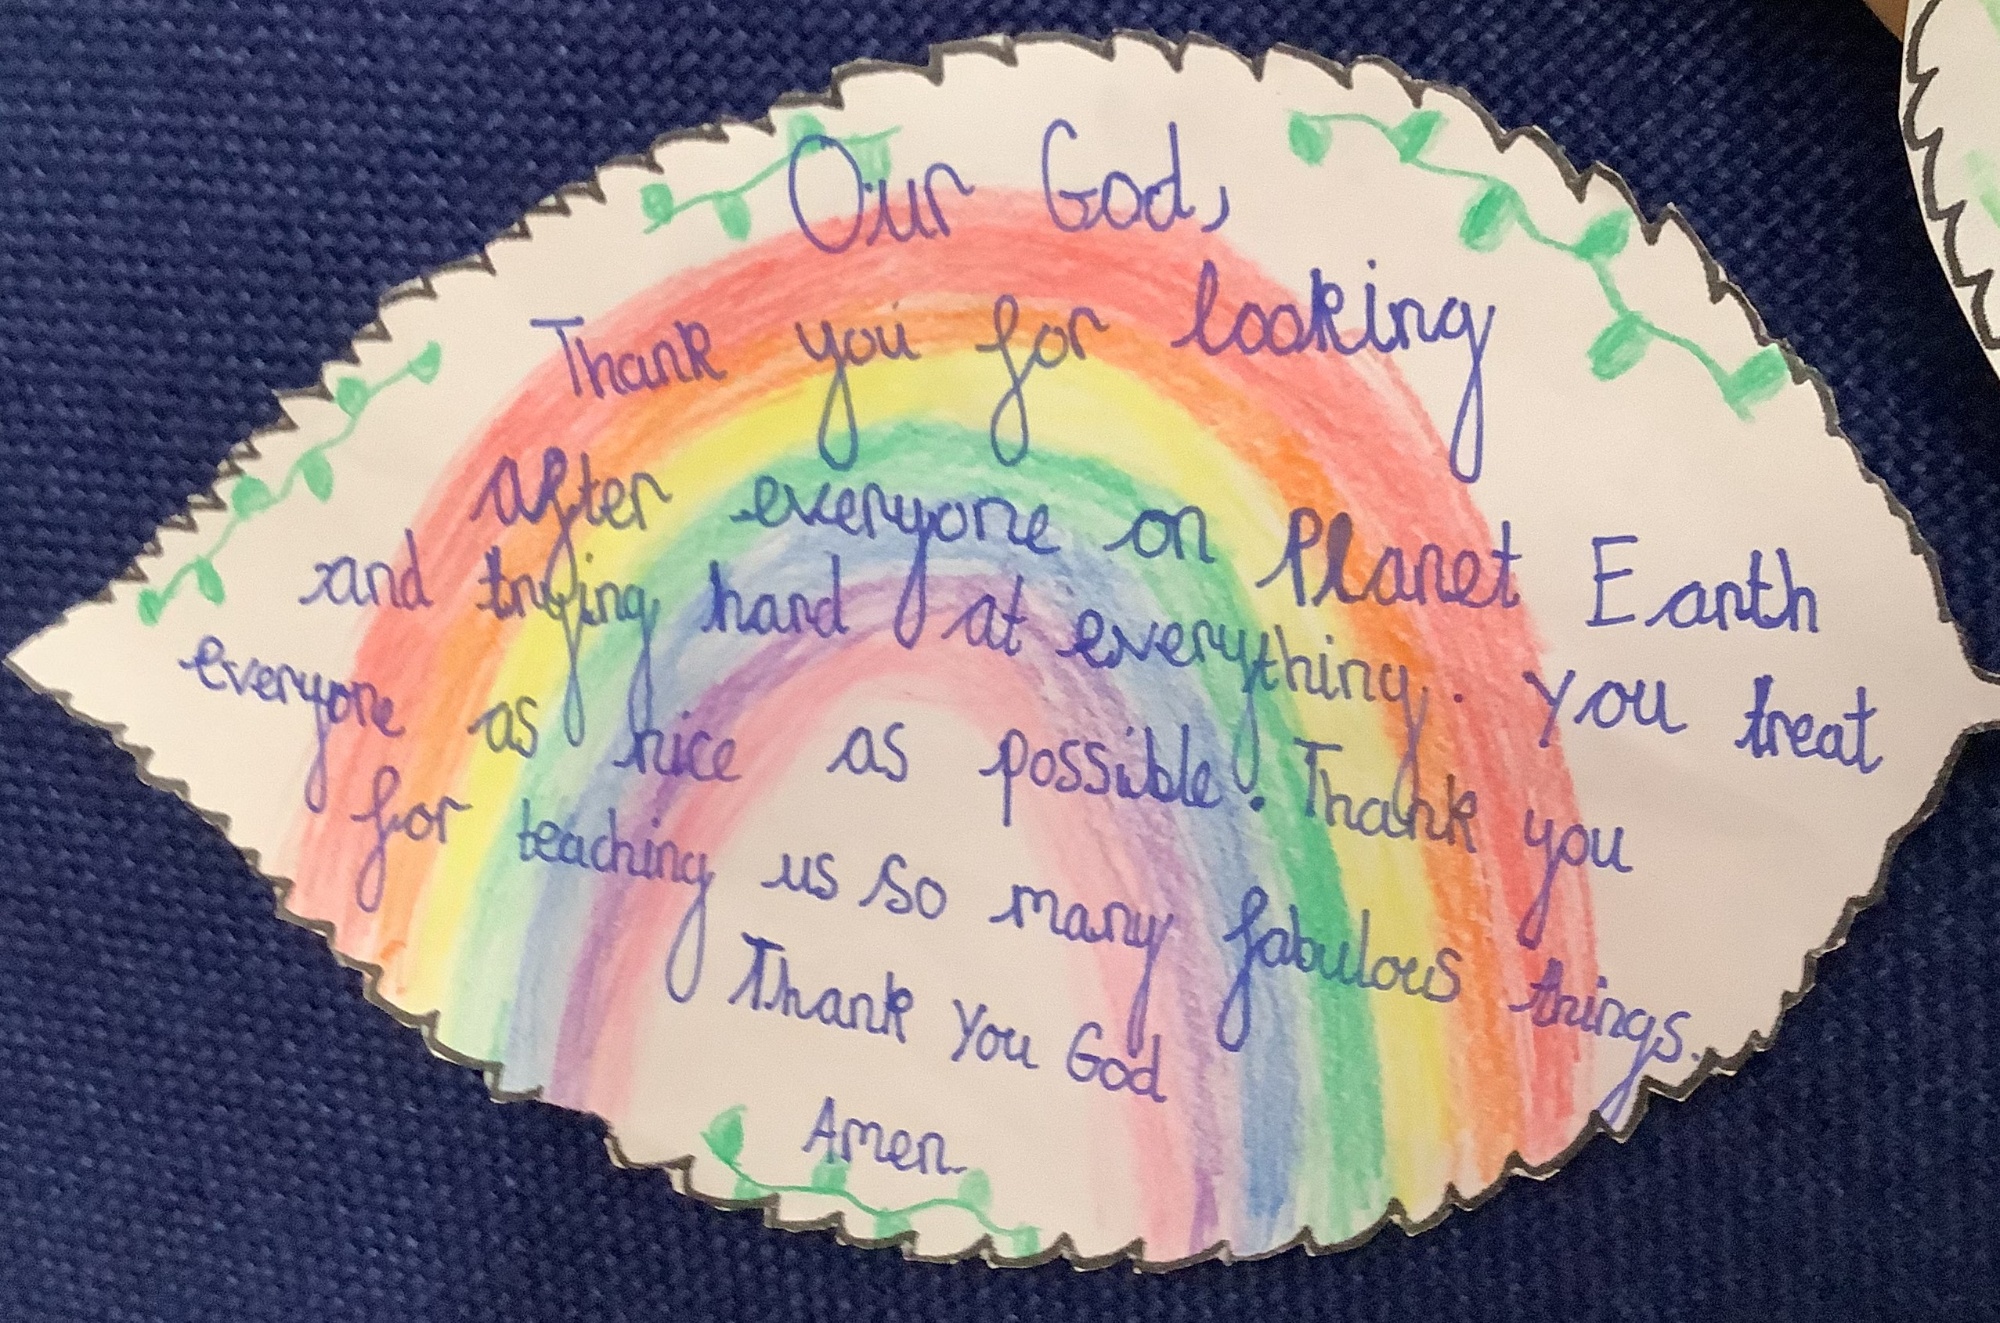 Our God,
Thank you for looking
after everyone on Planet Earth
and trying hard at everything. You treat
everyone as nice as possible. Thank you
for teaching us so many fabulous things.
Thank you God
Amen